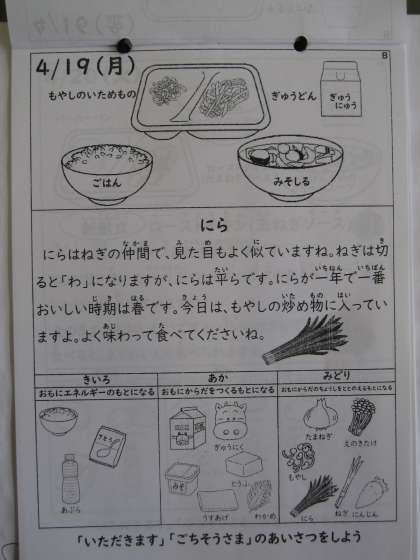 4/19(月)
B
もやしのいためもの
ぎゅうどん
ぎゅう
にゅう
ごはん
みそしる
にら
にらはねぎの仲間で、見た目もよく似ていますね。ねぎは切
ると「わ」になりますが、にらは平らです。にらが一年で一番
おいしい時期は春です。今日は、もやしの炒め物に入ってい
ますよ。よく味わって食べてくださいね。
きいろ
おもにエネルギーのもとになる
さとう
あぶら
あか
おもにからだをつくるもとになる
ぎゅうにく
みそ
とうふ
うすあげ
わかめ
みどり
おもにからだのちょうしをととのえるもとになる
たまねぎ
えのきたけ
もやし
にら
ねぎ
にんじん
「いただきます」「ごちそうさま」のあいさつをしよう